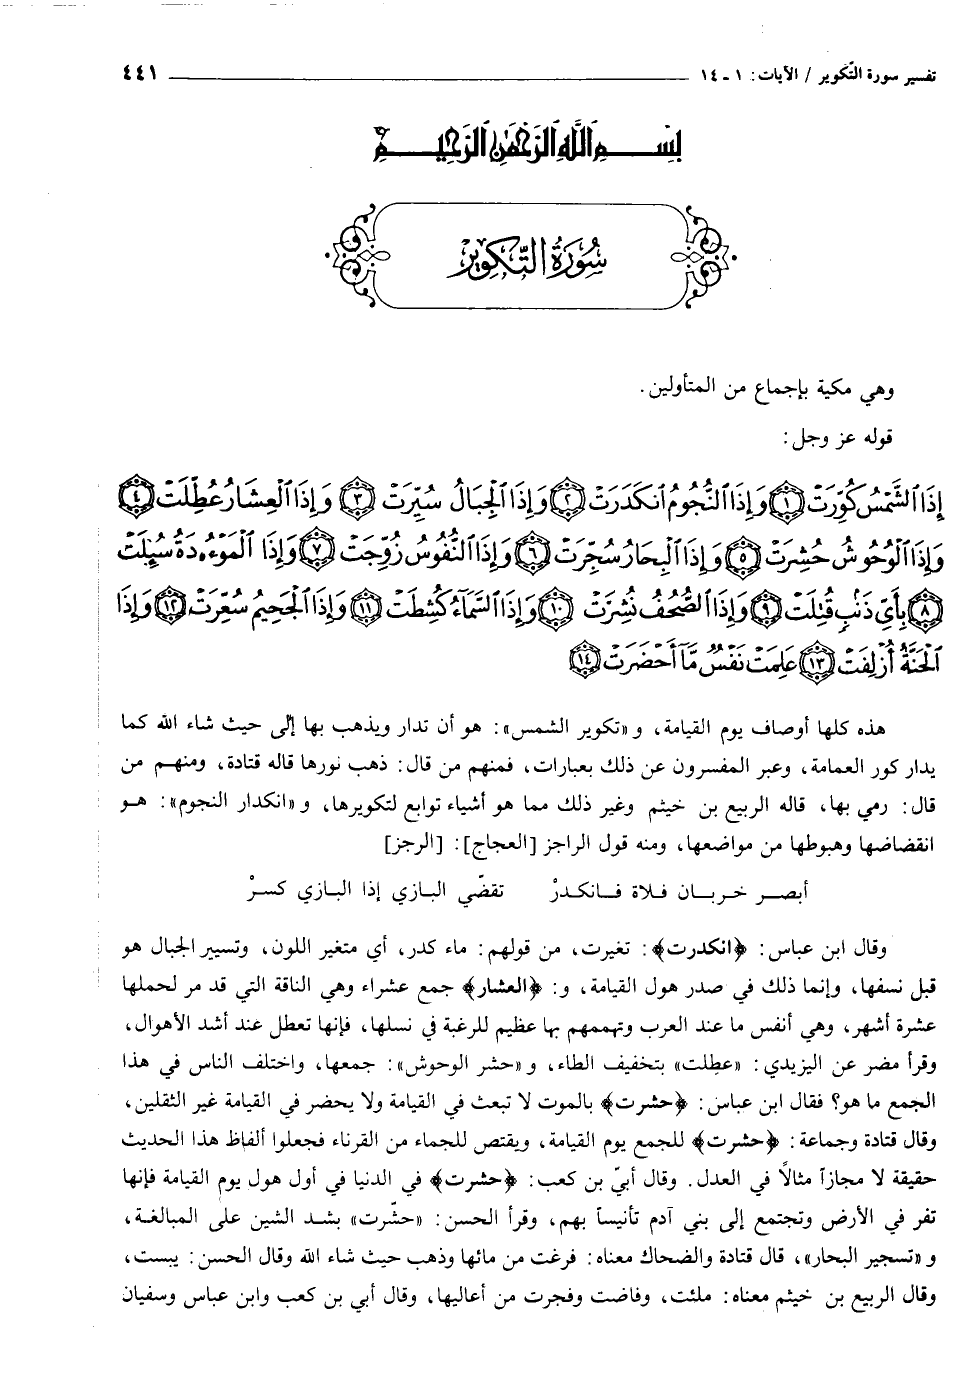 تفسير سورة التّكوير / الآيات: ١ - ١٤ ٤٤١
بِسْمِ اللَّهِ الرَّحْمَٰنِ الرَّحِيمِ
سُورَةُ التَّكْوِيرِ
وهي مكية بإجماع من المتأولين.
قوله عز وجل:
إِذَا ٱلشَّمْسُ كُوِّرَتْ ﴿١﴾ وَإِذَا ٱلنُّجُومُ ٱنكَدَرَتْ ﴿٢﴾ وَإِذَا ٱلْجِبَالُ سُيِّرَتْ ﴿٣﴾ وَإِذَا ٱلْعِشَارُ عُطِّلَتْ ﴿٤﴾
وَإِذَا ٱلْوُحُوشُ حُشِرَتْ ﴿٥﴾ وَإِذَا ٱلْبِحَارُ سُجِّرَتْ ﴿٦﴾ وَإِذَا ٱلنُّفُوسُ زُوِّجَتْ ﴿٧﴾ وَإِذَا ٱلْمَوْءُۥدَةُ سُئِلَتْ
﴿٨﴾ بِأَىِّ ذَنۢبٍ قُتِلَتْ ﴿٩﴾ وَإِذَا ٱلصُّحُفُ نُشِرَتْ ﴿١٠﴾ وَإِذَا ٱلسَّمَآءُ كُشِطَتْ ﴿١١﴾ وَإِذَا ٱلْجَحِيمُ سُعِّرَتْ ﴿١٢﴾ وَإِذَا
ٱلْجَنَّةُ أُزْلِفَتْ ﴿١٣﴾ عَلِمَتْ نَفْسٌ مَّآ أَحْضَرَتْ ﴿١٤﴾
هذه كلها أوصاف يوم القيامة، و«تكوير الشمس»: هو أن تدار ويذهب بها إلى حيث شاء الله كما
يدار كور العمامة، وعبر المفسرون عن ذلك بعبارات، فمنهم من قال: ذهب نورها قاله قتادة، ومنهم من
قال: رمي بها، قاله الربيع بن خيثم وغير ذلك مما هو أشياء توابع لتكويرها، و«انكدار النجوم»: هو
انقضاضها وهبوطها من مواضعها، ومنه قول الراجز [العجاج]: [الرجز]
أبصر خربان فلاة فانكدرْ تقضّي البازي إذا البازي كسرْ
وقال ابن عباس: ﴿انكدرت﴾: تغيرت، من قولهم: ماء كدر، أي متغير اللون، وتسيير الجبال هو
قبل نسفها، وإنما ذلك في صدر هول القيامة، و: ﴿العشار﴾ جمع عشراء وهي الناقة التي قد مر لحملها
عشرة أشهر، وهي أنفس ما عند العرب وتهممهم بها عظيم للرغبة في نسلها، فإنها تعطل عند أشد الأهوال،
وقرأ مضر عن اليزيدي: «عطِلت» بتخفيف الطاء، و«حشر الوحوش»: جمعها، واختلف الناس في هذا
الجمع ما هو؟ فقال ابن عباس: ﴿حشرت﴾ بالموت لا تبعث في القيامة ولا يحضر في القيامة غير الثقلين،
وقال قتادة وجماعة: ﴿حشرت﴾ للجمع يوم القيامة، ويقتص للجماء من القرناء فجعلوا ألفاظ هذا الحديث
حقيقة لا مجازاً مثالًا في العدل. وقال أبيّ بن كعب: ﴿حشرت﴾ في الدنيا في أول هول يوم القيامة فإنها
تفر في الأرض وتجتمع إلى بني آدم تأنيساً بهم، وقرأ الحسن: «حشّرت» بشد الشين على المبالغة،
و«تسجير البحار»، قال قتادة والضحاك معناه: فرغت من مائها وذهب حيث شاء الله وقال الحسن: يبست،
وقال الربيع بن خيثم معناه: ملئت، وفاضت وفجرت من أعاليها، وقال أبي بن كعب وابن عباس وسفيان